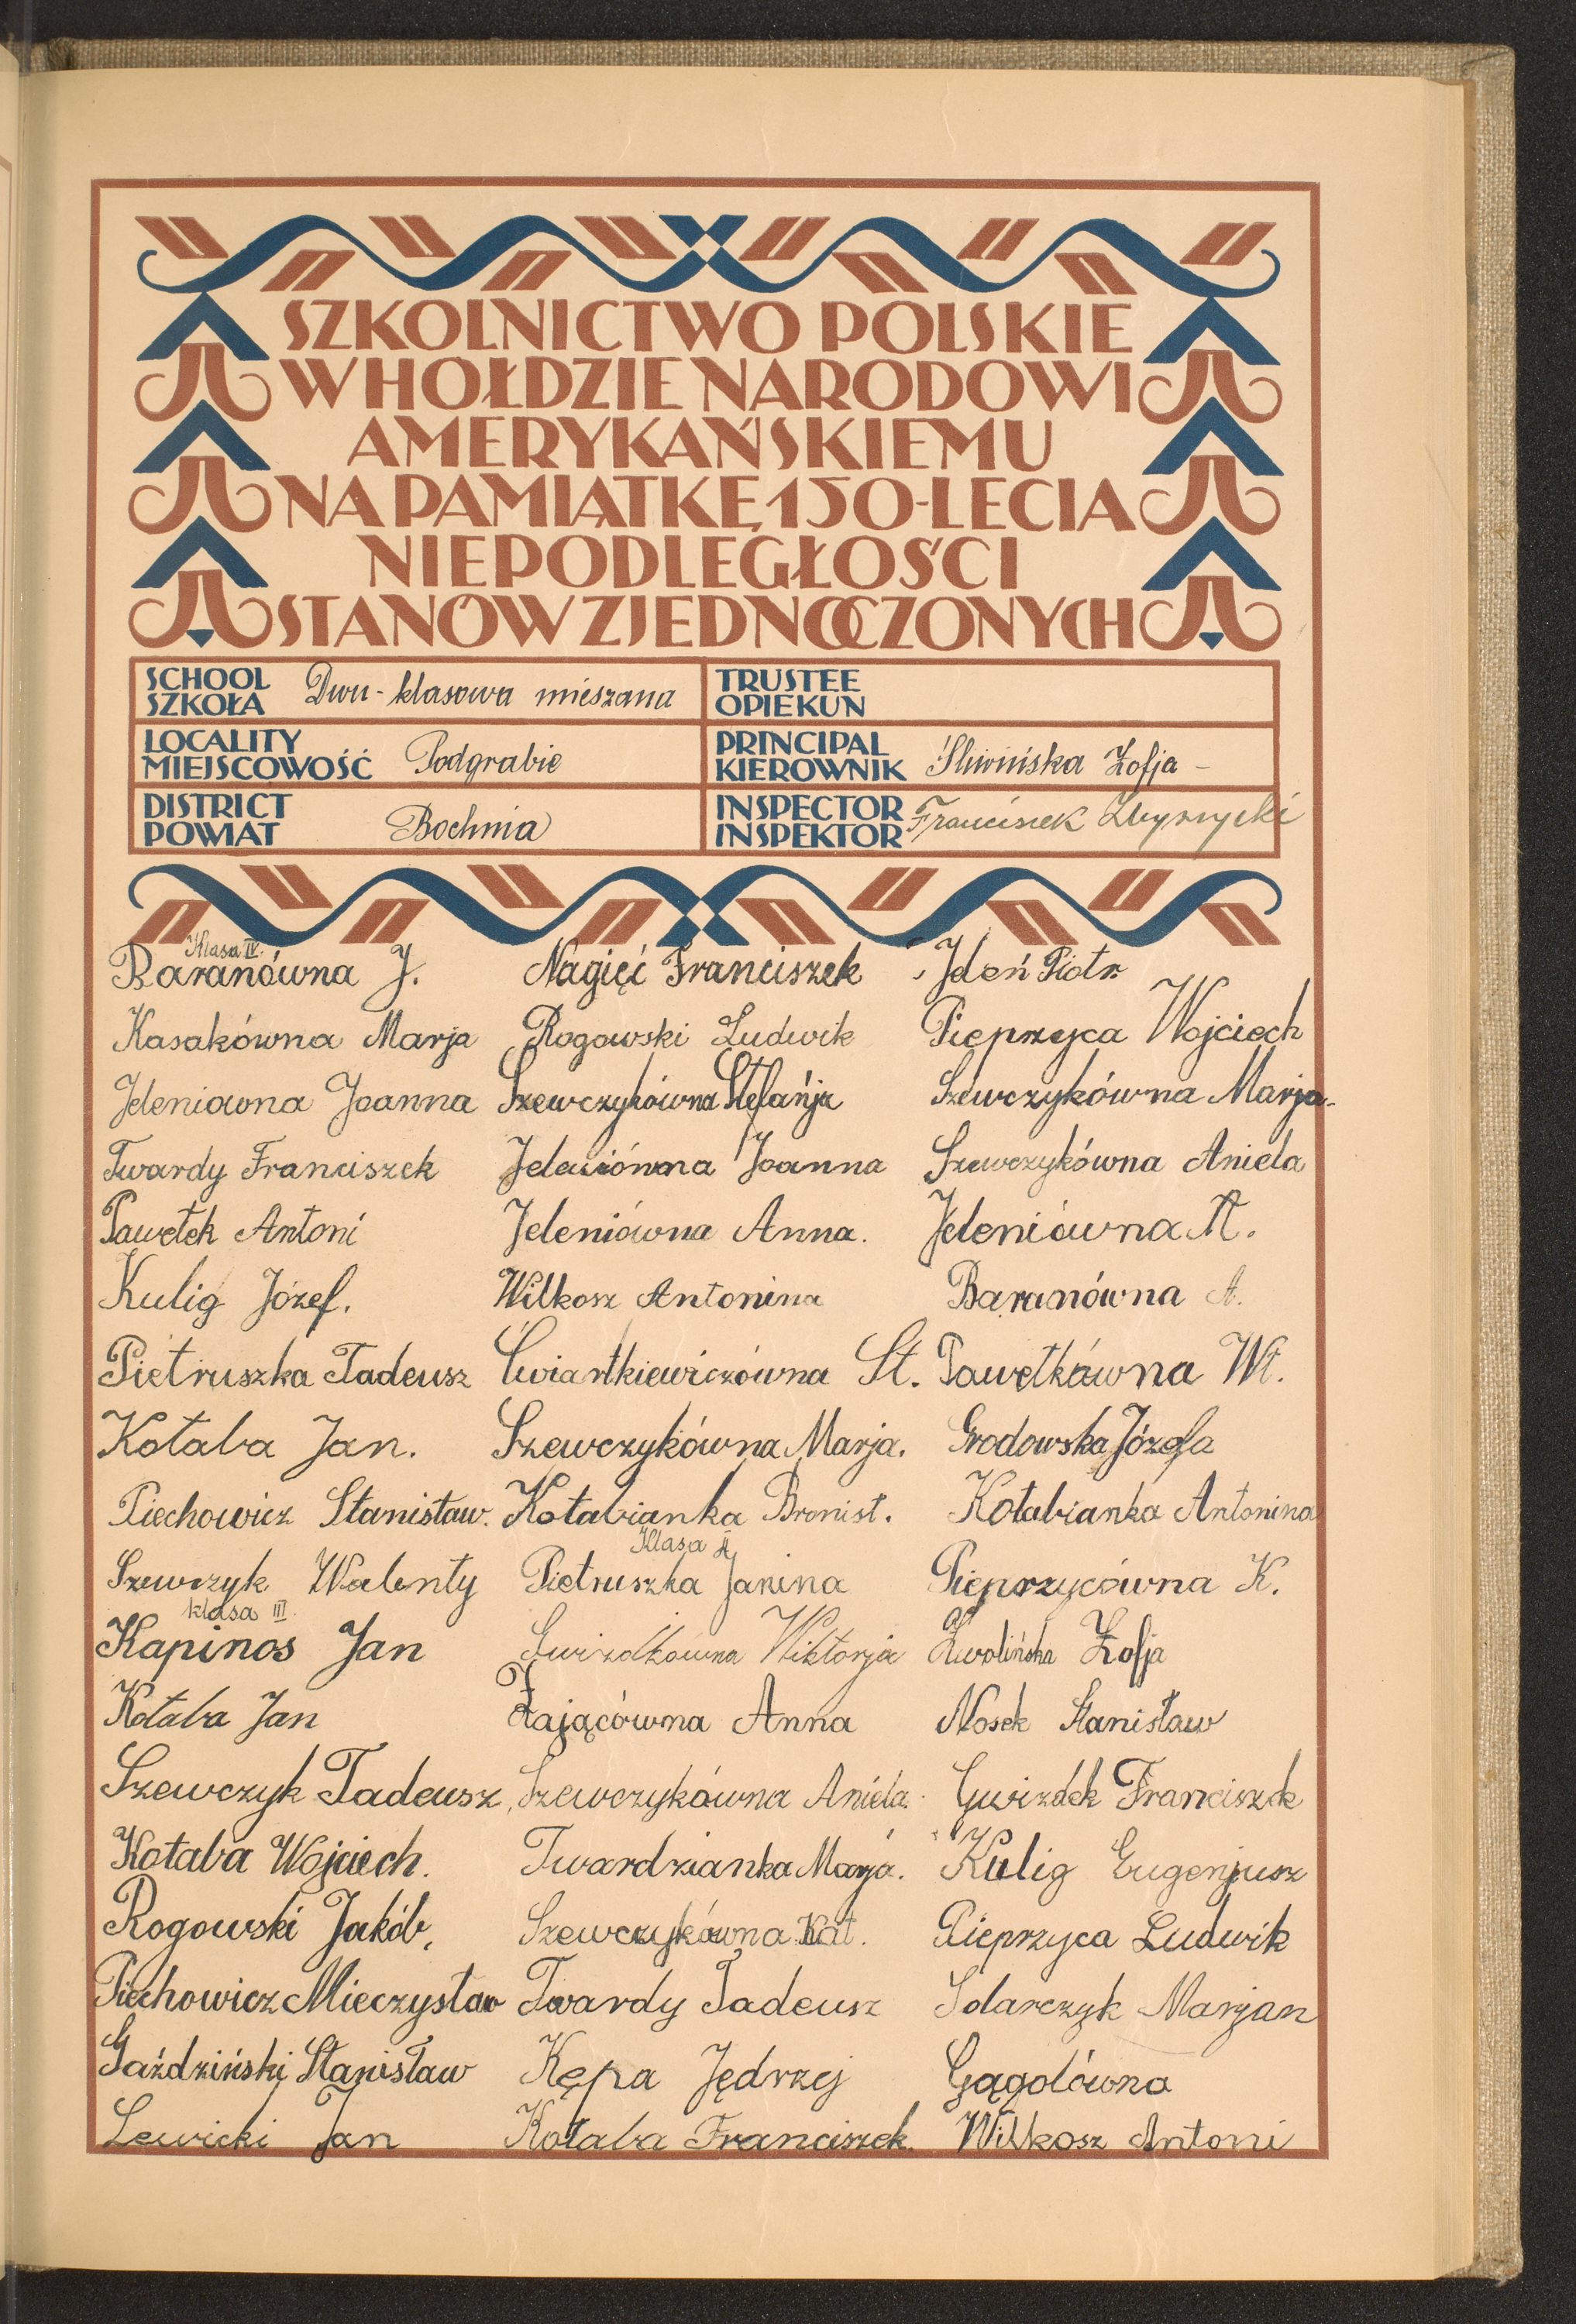 SZKOLNICTWO POLSKIE
W HOŁDZIE NARODOWI
AMERYKAŃSKIEMU
NA PAMIĄTKĘ 150-LECIA
NIEPODLEGŁOŚCI
STANÓW ZJEDNOCZONYCH
SCHOOL
SZKOŁA
Dwu-klasowa mieszana
TRUSTEE
OPIEKUN
LOCALITY
MIEJSCOWOŚĆ
Podgrabie
PRINCIPAL
KIEROWNIK
Śliwińska Zofja -
DISTRICT
POWIAT
Bochnia
INSPECTOR
INSPEKTOR
Franciszek
Klasa IV.
Baranówna J.
Kasakówna Marja
Jeleniówna Joanna
Twardy Franciszek
Pawełek Antoni
Kulig Józef.
Pietruszka Tadeusz
Kołaba Jan.
Piechowicz Stanisław.
Szewczyk Walenty
klasa III.
Kapinos Jan
Kołaba Jan
Szewczyk Tadeusz,
Kołaba Wojciech.
Rogowski Jakób,
Piechowicz Mieczysław
Gaździński Stanisław
Lewicki Jan
Nagięć Franciszek
Rogowski Ludwik
Szewczykówna Stefańja
Jeleniówna Joanna
Jeleniówna Anna.
Wilkosz Antonina
Ćwiartkiewiczówna St.
Szewczykówna Marja.
Kołabianka Bronisł.
Klasa II
Pietruszka Janina
Gwizdkówna Wiktorja
Zającówna Anna
Szewczykówna Aniela.
Twardzianka Marja.
Szewczykówna Kat.
Twardy Tadeusz
Kępa Jędrzej
Kołaba Franciszek.
Jeleń Piotr
Pieprzyca Wojciech
Szewczykówna Marja.
Szewczykówna Aniela
Jeleniówna A.
Baranówna A.
Pawełkówna Wł.
Grodowska Józefa
Kołabianka Antonina
Pieprzycówna K.
Zwolińska Zofja
Nosek Stanisław
Gwizdek Franciszek
Kulig Eugenjusz
Pieprzyca Ludwik
Solarczyk Marjan
Gągolówna
Wilkosz Antoni